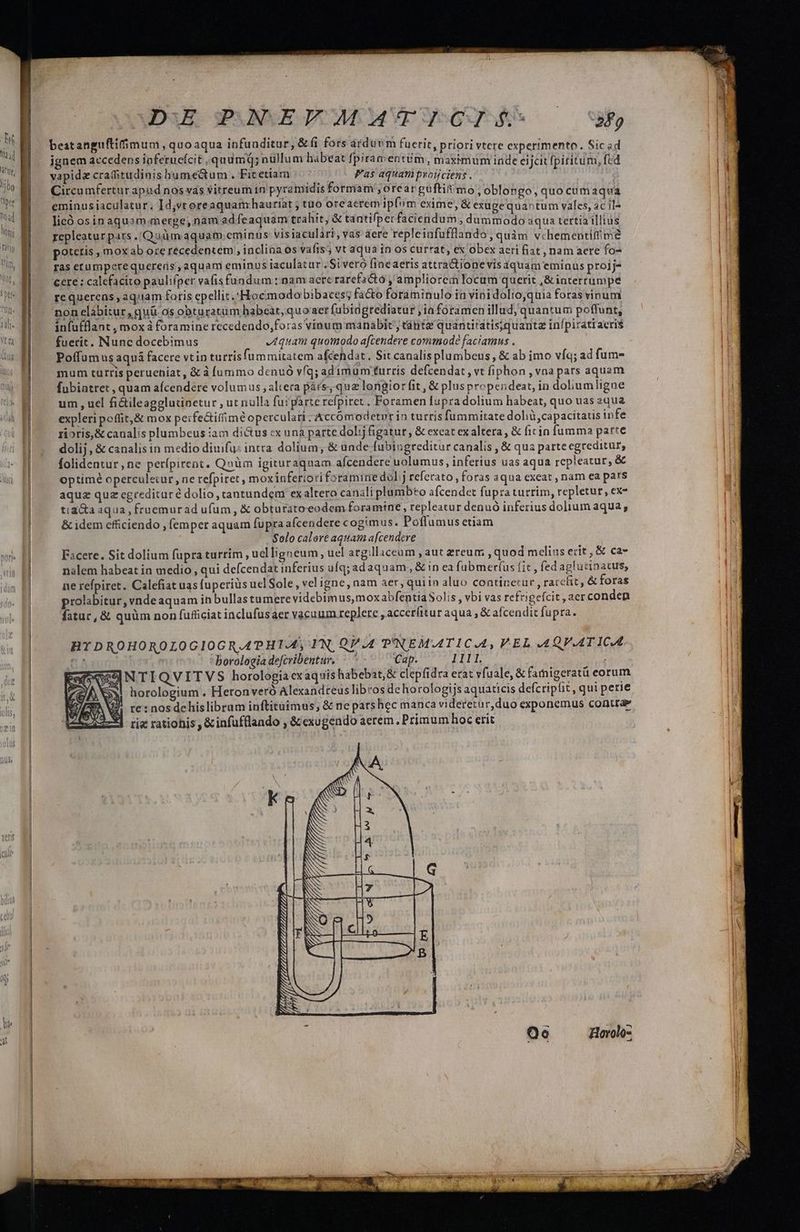 DE PNEVMATICIS. 289
beat angustissimum, quo aqua infunditur, & si fors arduum fuerit, priori vtere experimento. Sic ad
ignem accedens inferuescit, quumq; nullum habeat spiramentum, maximum inde eijcit spiritum, sed
vapidæ crassitudinis humectum. Fit etiam Vas aquam proijciens.
Circumfertur apud nos vas vitreum in pyramidis formam, ore angustissimo, oblongo, quo cum aqua
eminus iaculatur. Id, vt ore aquam hauriat, tuo ore aerem ipsum exime, & exuge quantum vales, ac il-
licò os in aquam merge, nam ad se aquam trahit, & tantisper faciendum, dummodo aqua tertia illius
repleatur pars. Quùm aquam eminus vis iaculari, vas aere reple insufflando, quàm vehementissimè
poteris, mox ab ore recedentem, inclina os vasis, vt aqua in os currat, ex obex aeri fiat, nam aere fo-
ras erumpere querens, aquam eminus iaculatur. Si verò sine aeris attractione vis aquam eminus proij-
cere: calefacito paulisper vasis fundum: nam aere rarefacto, ampliorem locum querit, & interrumpe
re querens, aquam foris epellit. Hoc modo bibaces; facto foraminulo in vini dolio, quia foras vinum
non elabitur, quū os obturatum habeat, quo aer subingrediatur, in foramen illud, quantum possunt,
insufflant, mox à foramine recedendo, foras vinum manabit, tantæ quantitatis; quantæ inspirati aeris
fuerit. Nunc docebimus Aquam quomodo ascendere commodè faciamus.
Possumus aquā facere vt in turris summitatem ascendat. Sit canalis plumbeus, & ab imo vsq; ad sum-
mum turris perueniat, & à summo denuò vsq; ad imum turris descendat, vt siphon, vna pars aquam
subintret, quam ascendere volumus, altera pars, quæ longior sit, & plus propendeat, in dolium ligne
um, uel fictile agglutinetur, ut nulla sui parte respiret. Foramen supra dolium habeat, quo uas aqua
expleri possit, & mox perfectissimè operculari. Accōmodetur in turris summitate doliū, capacitatis infe
rioris, & canalis plumbeus iam dictus ex una parte dolij figatur, & exeat ex altera, & sic in summa parte
dolij, & canalis in medio diuisus intra dolium, & unde subingreditur canalis, & qua parte egreditur,
solidentur, ne perspirent. Quùm igitur aquam ascendere uolumus, inferius uas aqua repleatur, &
optimè operculetur, ne respiret, mox inferiori foramine dolij reserato, foras aqua exeat, nam ea pars
aquæ quæ egreditur è dolio, tantundem ex altero canali plumbeo ascendet supra turrim, repletur, ex-
tracta aqua, fruemur ad usum, & obturato eodem foramine, repleatur denuò inferius dolium aqua,
& idem efficiendo, semper aquam supra ascendere cogimus. Possumus etiam
Solo calore aquam ascendere
Facere. Sit dolium supra turrim, uel ligneum, uel argillaceum, aut æreum, quod melius erit, & ca-
nalem habeat in medio, qui descendat inferius usq; ad aquam, & in ea submersus sit, sed aglutinatus,
ne respiret. Calefiat uas superiùs uel Sole, vel igne, nam aer, qui in aluo continetur, rarefit, & foras
prolabitur, vnde aquam in bullas tumere videbimus, mox absentia Solis, vbi vas refrigescit, aer conden
satur, & quùm non sufficiat inclusus aer vacuum replere, accersitur aqua, & ascendit supra.
HYDROHOROLOGIOGRAPHIA, IN QVA PNEMATICA, VEL AQVATICA
horologia describentur. Cap. IIII.
ANTIQVITVS horologia ex aquis habebat, & clepsidra erat vsuale, & famigeratū eorum
horologium. Heron verò Alexandreus libros de horologijs aquaticis descripsit, qui perie
re: nos de his librum instituimus, & ne pars hęc manca videretur, duo exponemus contra-
riæ rationis, & insufflando, & exugendo aerem. Primum hoc erit
A
K D 1
2
3
4
5
6 G
7
8
O 9
F C 10 E
B
Oo Horolo-